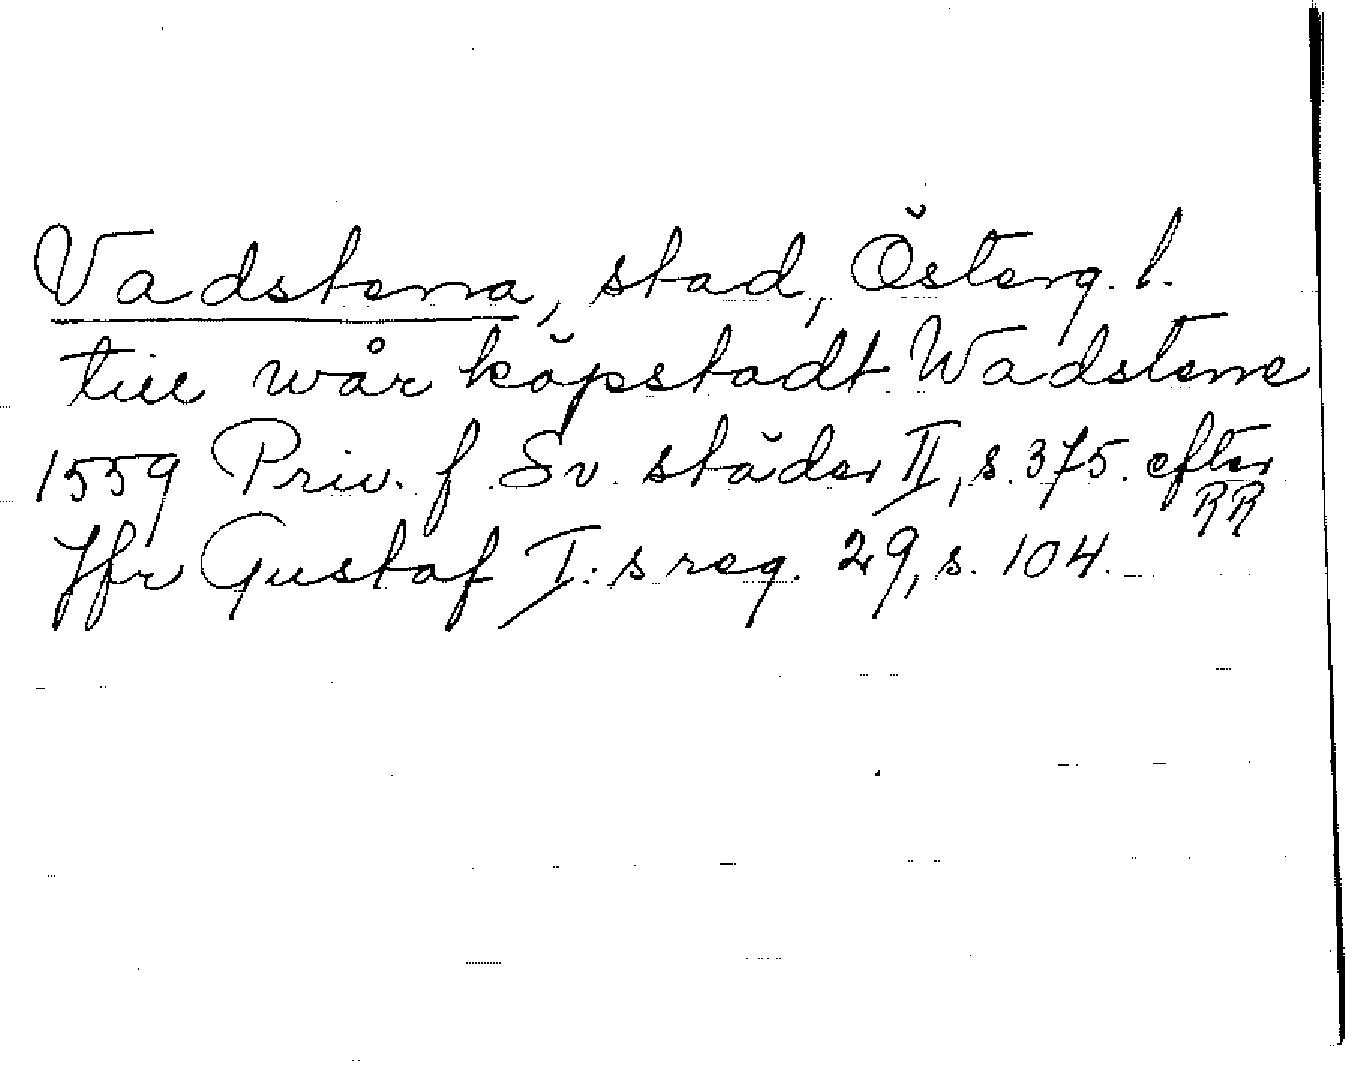 Vadstena, stad, Österg. l.
till wår köpstadt Wadstene
1559 Priv. f. Sv. städer II, s. 375. efter
RR
Jfr Gustaf I:s reg. 29, s. 104.